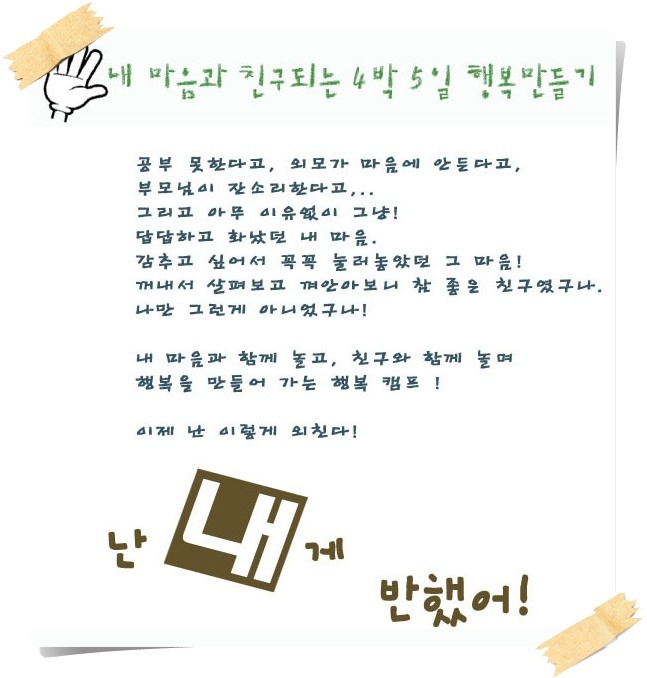 내 마음과 친구되는 4박 5일 행복만들기
공부 못한다고, 외모가 마음에 안든다고,
부모님이 잔소리한다고,..
그리고 아무 이유없이 그냥!
답답하고 화났던 내 마음.
감추고 싶어서 꼭꼭 눌러놓았던 그 마음!
꺼내서 살펴보고 껴안아보니 참 좋은 친구였구나.
나만 그런게 아니었구나!
내 마음과 함께 놀고, 친구와 함께 놀며
행복을 만들어 가는 행복 캠프 !
이제 난 이렇게 외친다!
난 내게
반했어!